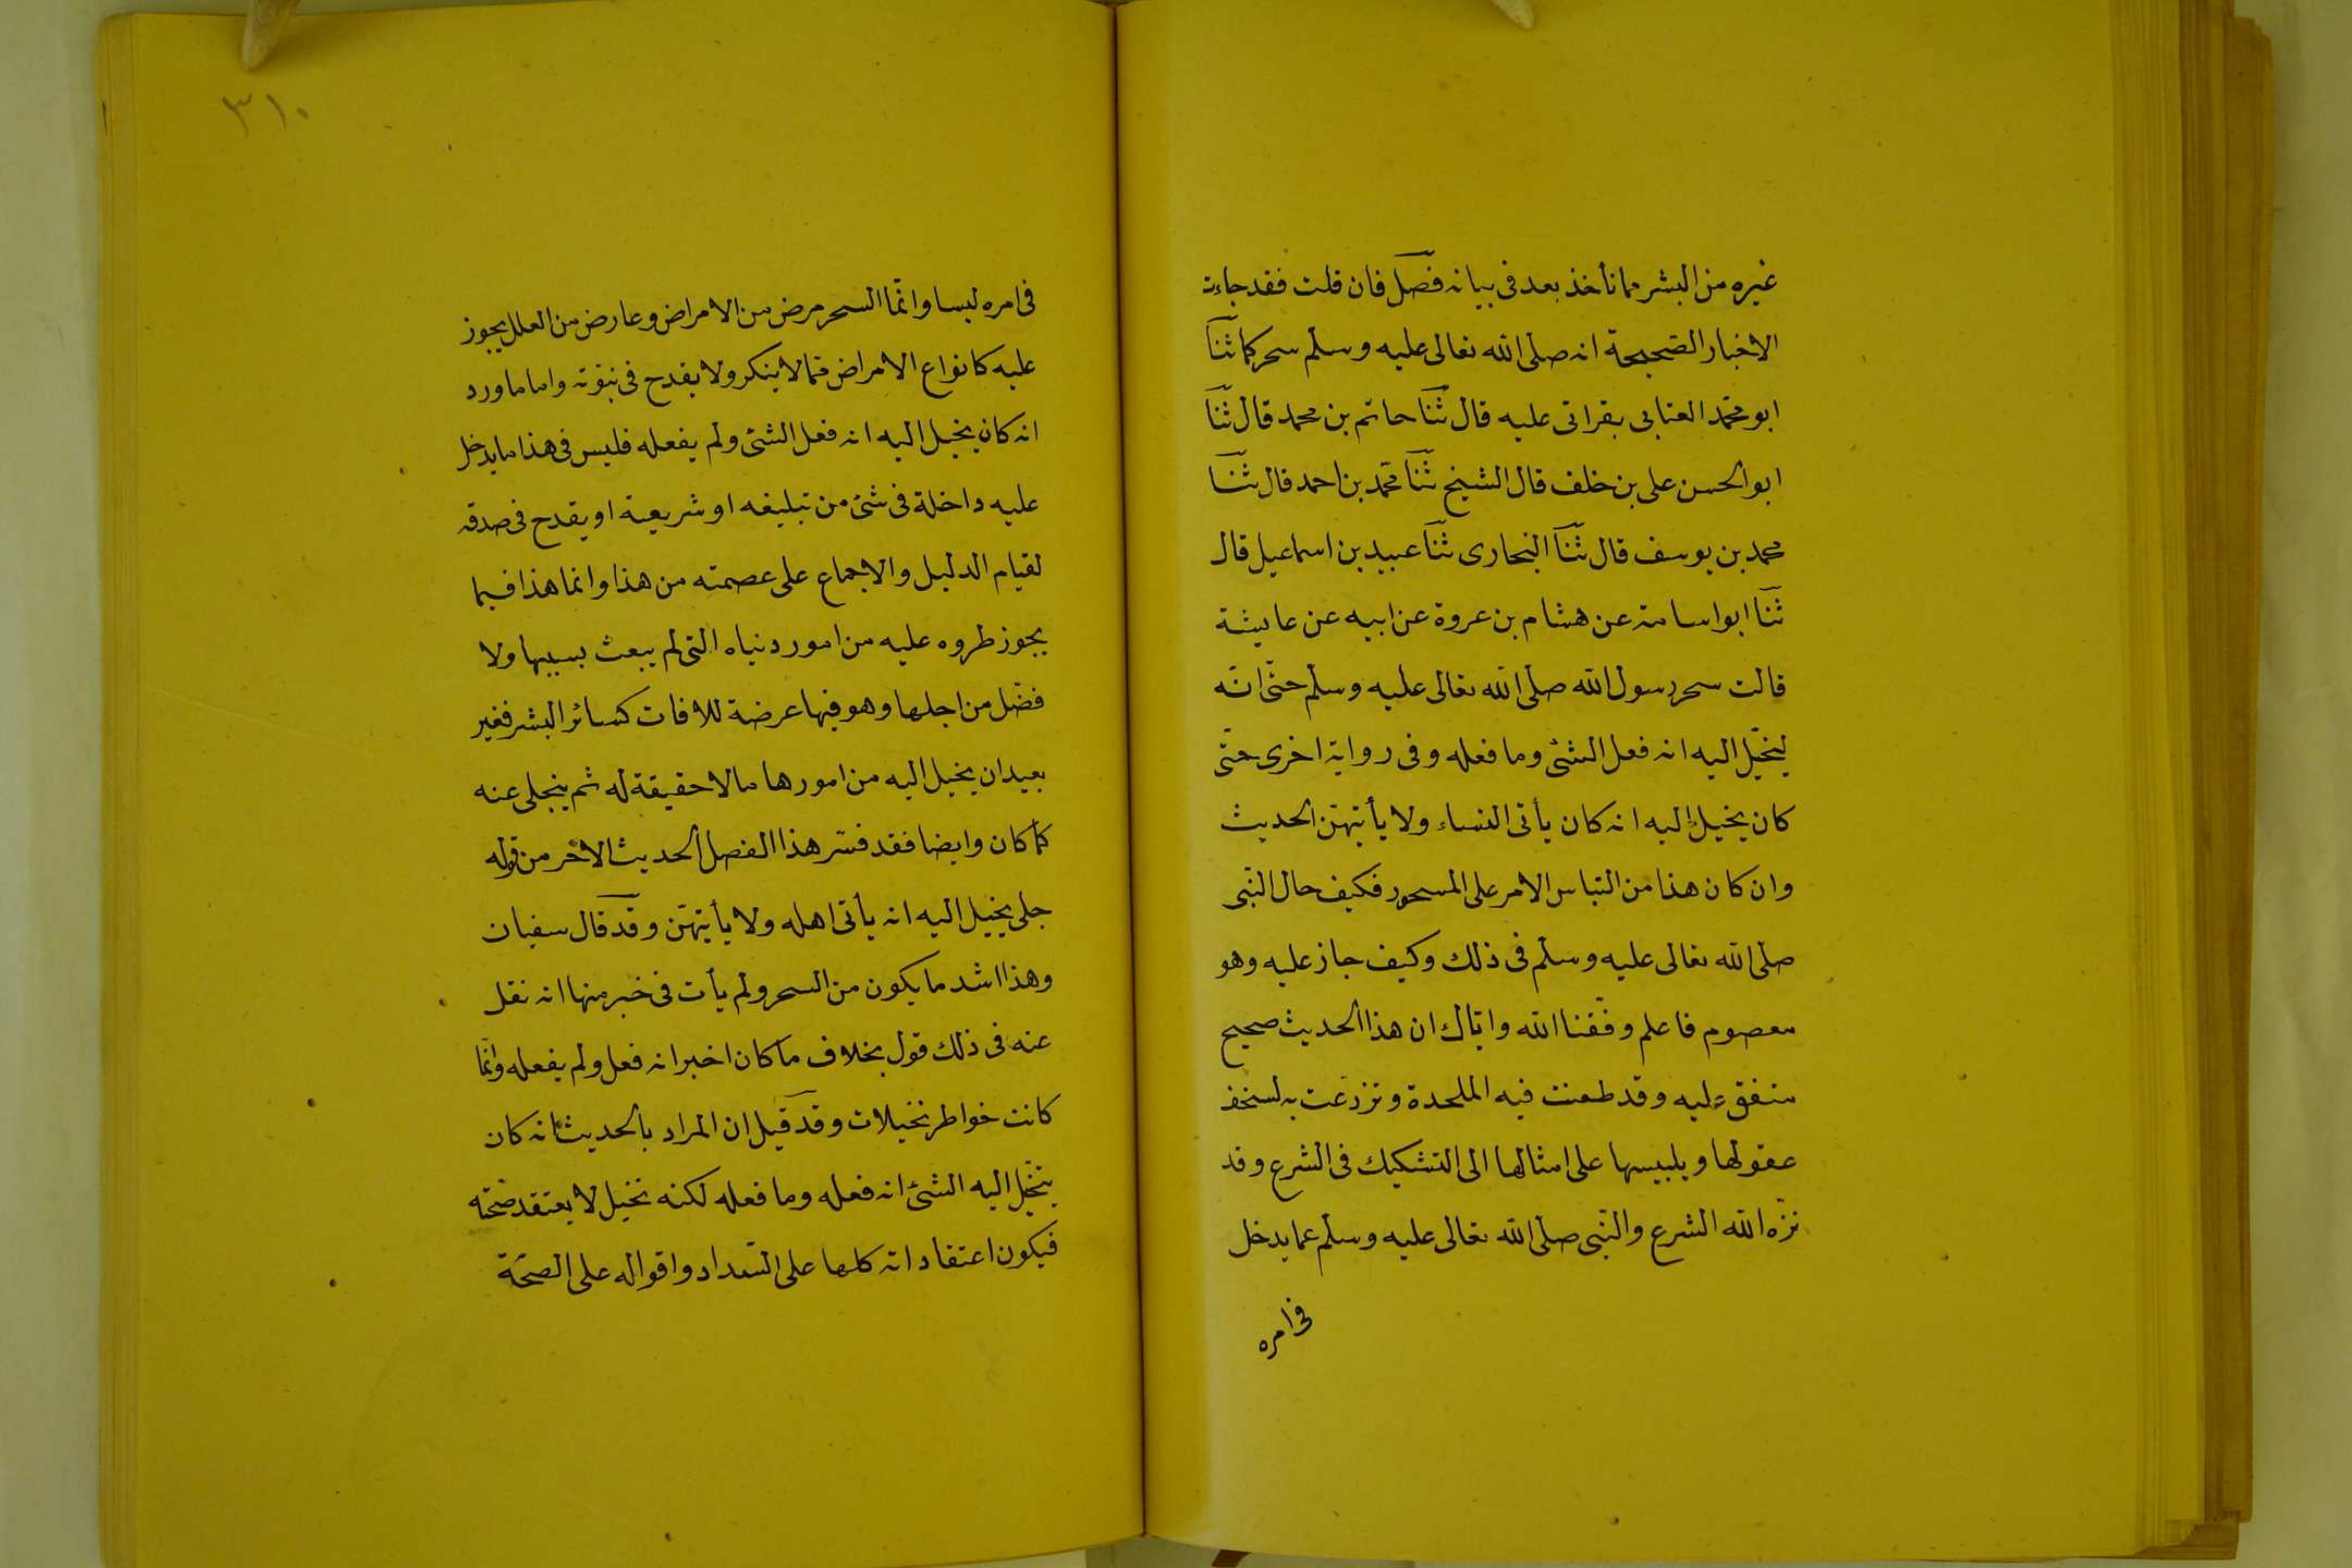 غيره من البشر مما نأخذ بعد فى بيانه فصل فان قلت فقد جاءت
الاخبار الصحيحة انه صلى الله تعالى عليه وسلم سحر كما ثنا
ابو محمد العتابى بقراتى عليه قال ثنا حاتم بن محمد قال ثنا
ابو الحسن على بن خلف قال الشيخ ثنا محمد بن احمد قال ثنا
محمد بن يوسف قال ثنا البخارى ثنا عبيد بن اسماعيل قال
ثنا ابو اسامة عن هشام بن عروة عن ابيه عن عايشة
قالت سحر رسول الله صلى الله تعالى عليه وسلم حتى انه
ليخيل اليه انه فعل الشئ وما فعله وفى رواية اخرى حتى
كان يخيل اليه انه كان يأتى النساء ولا يأتيهن الحديث
وان كان هذا من التباس الامر على المسحور فكيف حال النبى
صلى الله تعالى عليه وسلم فى ذلك وكيف جاز عليه وهو
معصوم فاعلم وفقنا الله واياك ان هذا الحديث صحيح
متفق عليه وقد طعنت فيه الملحدة وتزرعت به لسخف
عقولها ويلبيسها على امثالها الى التشكيك فى الشرع وقد
نزه الله الشرع والنبى صلى الله تعالى عليه وسلم عما يدخل
فى امره
٣١٠
فى امره لبسا وانما السحر مرض من الامراض وعارض من العلل يجوز
عليه كانواع الامراض مما لا ينكر ولا يقدح فى نبوته واما ما ورد
انه كان يخيل اليه انه فعل الشئ ولم يفعله فليس فى هذا ما يدخل
عليه داخلة فى شئ من تبليغه او شريعية او يقدح فى صدقه
لقيام الدليل والاجماع على عصمته من هذا وانما هذا فيما
يجوز طروه عليه من امور دنياه التى لم يبعث بسببها ولا
فضل من اجلها وهو فيها عرضة للافات كسائر البشر فغير
بعيد ان يخيل اليه من امورها ما لا حقيقة له ثم ينجلى عنه
كما كان وايضا فقد فسر هذا الفصل الحديث الاخر من قوله
جلى يخيل اليه انه يأتى اهله ولا يأتيهن وقد قال سفيان
وهذا اشد ما يكون من السحر ولم يأت فى خبر منها انه نقل
عنه فى ذلك قول بخلاف ما كان اخبر انه فعل ولم يفعله وانما
كانت خواطر تخيلات وقد قيل ان المراد بالحديث انه كان
يتخيل اليه الشئ انه فعله وما فعله لكنه تخيل لا يعتقد صحته
فيكون اعتقاداته كلها على السداد واقواله على الصحة